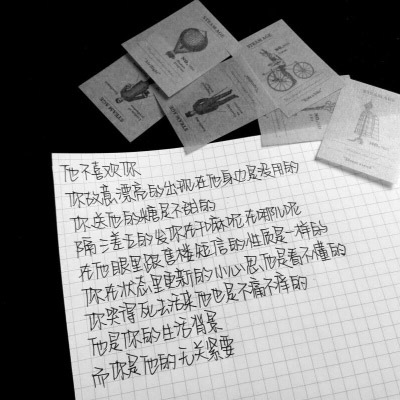 STEAM AGE
STEAM AGE
STEAM AGE
STEAM AGE
他不喜欢你
你故意漂亮的出现在他身边是没用的
你送他的糖是不甜的
隔三差五的发你在干嘛呢在哪儿呢
在他眼里跟售楼短信的性质是一样的
你在状态里更新的小心思他是看不懂的
你哭得死去活来他也是不痛不痒的
他是你的生活背景
而你是他的无关紧要